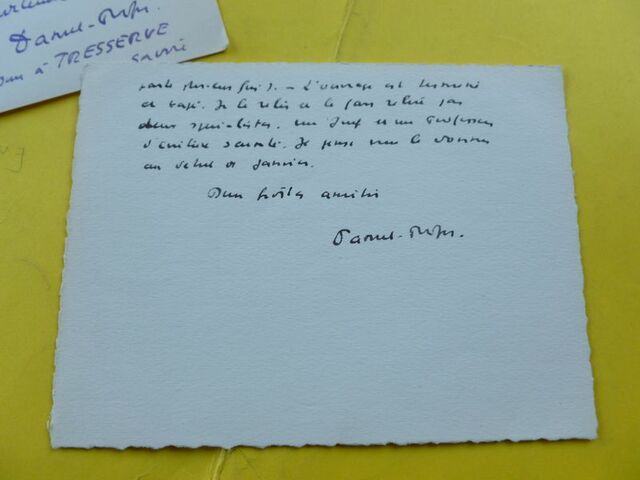 Daniel-Rops.
à TRESSERVE
Savoie
fois). – L'ouvrage est terminé
et tapé. Je le relis et le fais relire par
deux spécialistes, un Juif et un Professeur
d'écriture sainte. Je pense vous le donner
au début de Janvier.
Bien fidèles amitiés
Daniel-Rops.